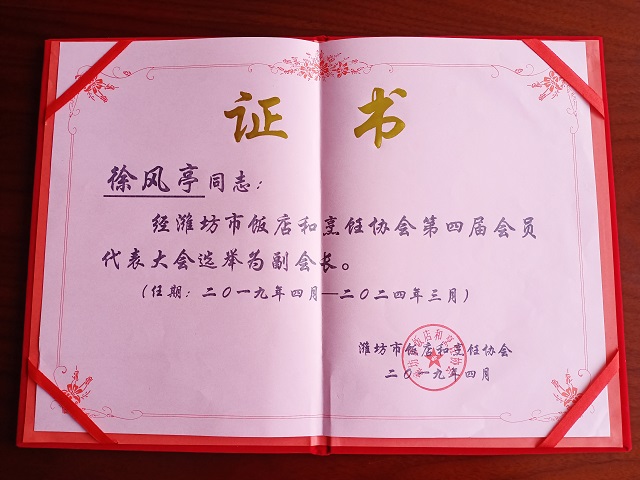 证 书
徐风亭同志：
经潍坊市饭店和烹饪协会第四届会员
代表大会选举为副会长。
（任期：二〇一九年四月—二〇二四年三月）
潍坊市饭店和烹饪协会
二〇一九年四月